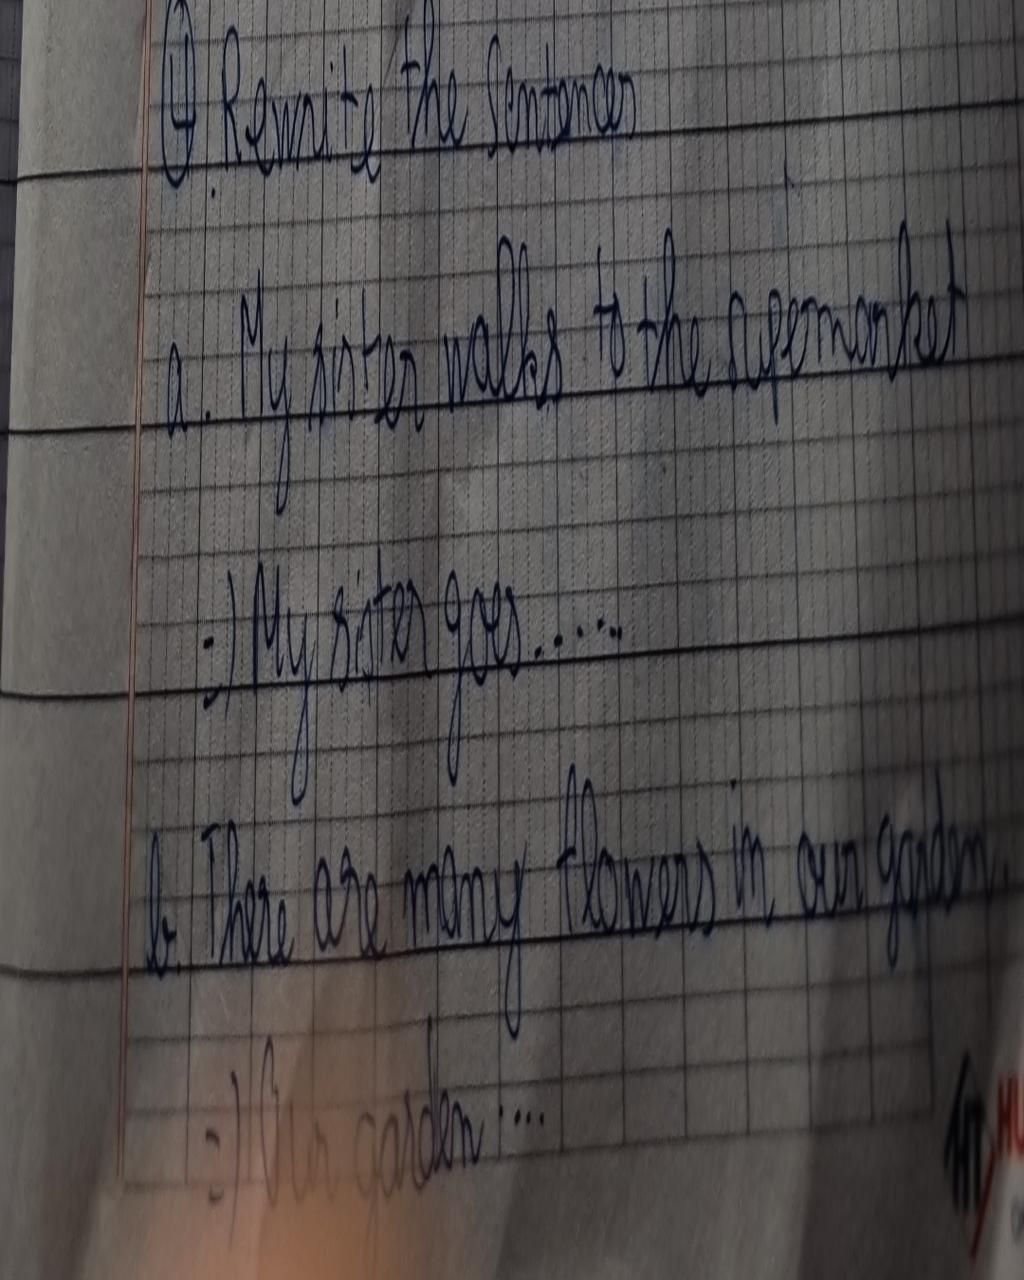 ④. Rewrite the Sentences
a. My sister walks to the supemarket
=) My sister goes.....
b. There are many flowers in our garden.
=) Our garden....